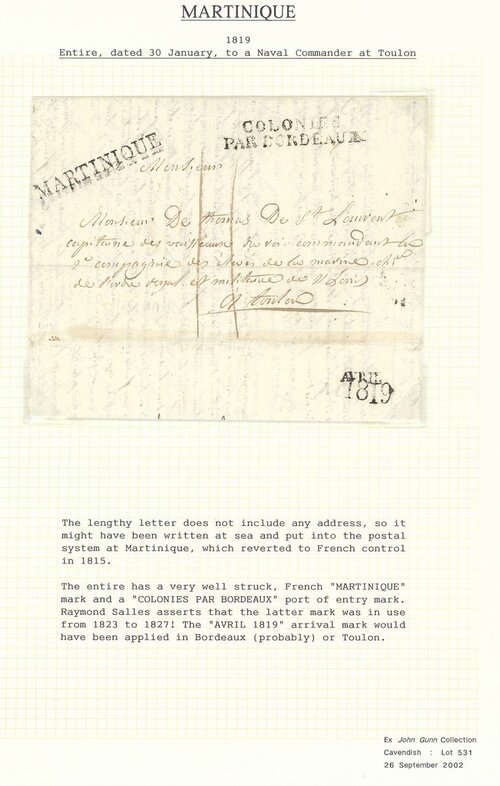 MARTINIQUE
1819
Entire, dated 30 January, to a Naval Commander at Toulon
MARTINIQUE
COLONIES
PAR BORDEAUX
Monsieur
Monsieur De thomas De St Laurent
capitaine des vaisseaux du roi commandant la
compagnie des élèves de la marine. ch.
de l'ordre royal et militaire de St Louis
A toulon
AVRIL
1819
The lengthy letter does not include any address, so it
might have been written at sea and put into the postal
system at Martinique, which reverted to French control
in 1815.
The entire has a very well struck, French "MARTINIQUE"
mark and a "COLONIES PAR BORDEAUX" port of entry mark.
Raymond Salles asserts that the latter mark was in use
from 1823 to 1827! The "AVRIL 1819" arrival mark would
have been applied in Bordeaux (probably) or Toulon.
Ex John Gunn Collection
Cavendish : Lot 531
26 September 2002